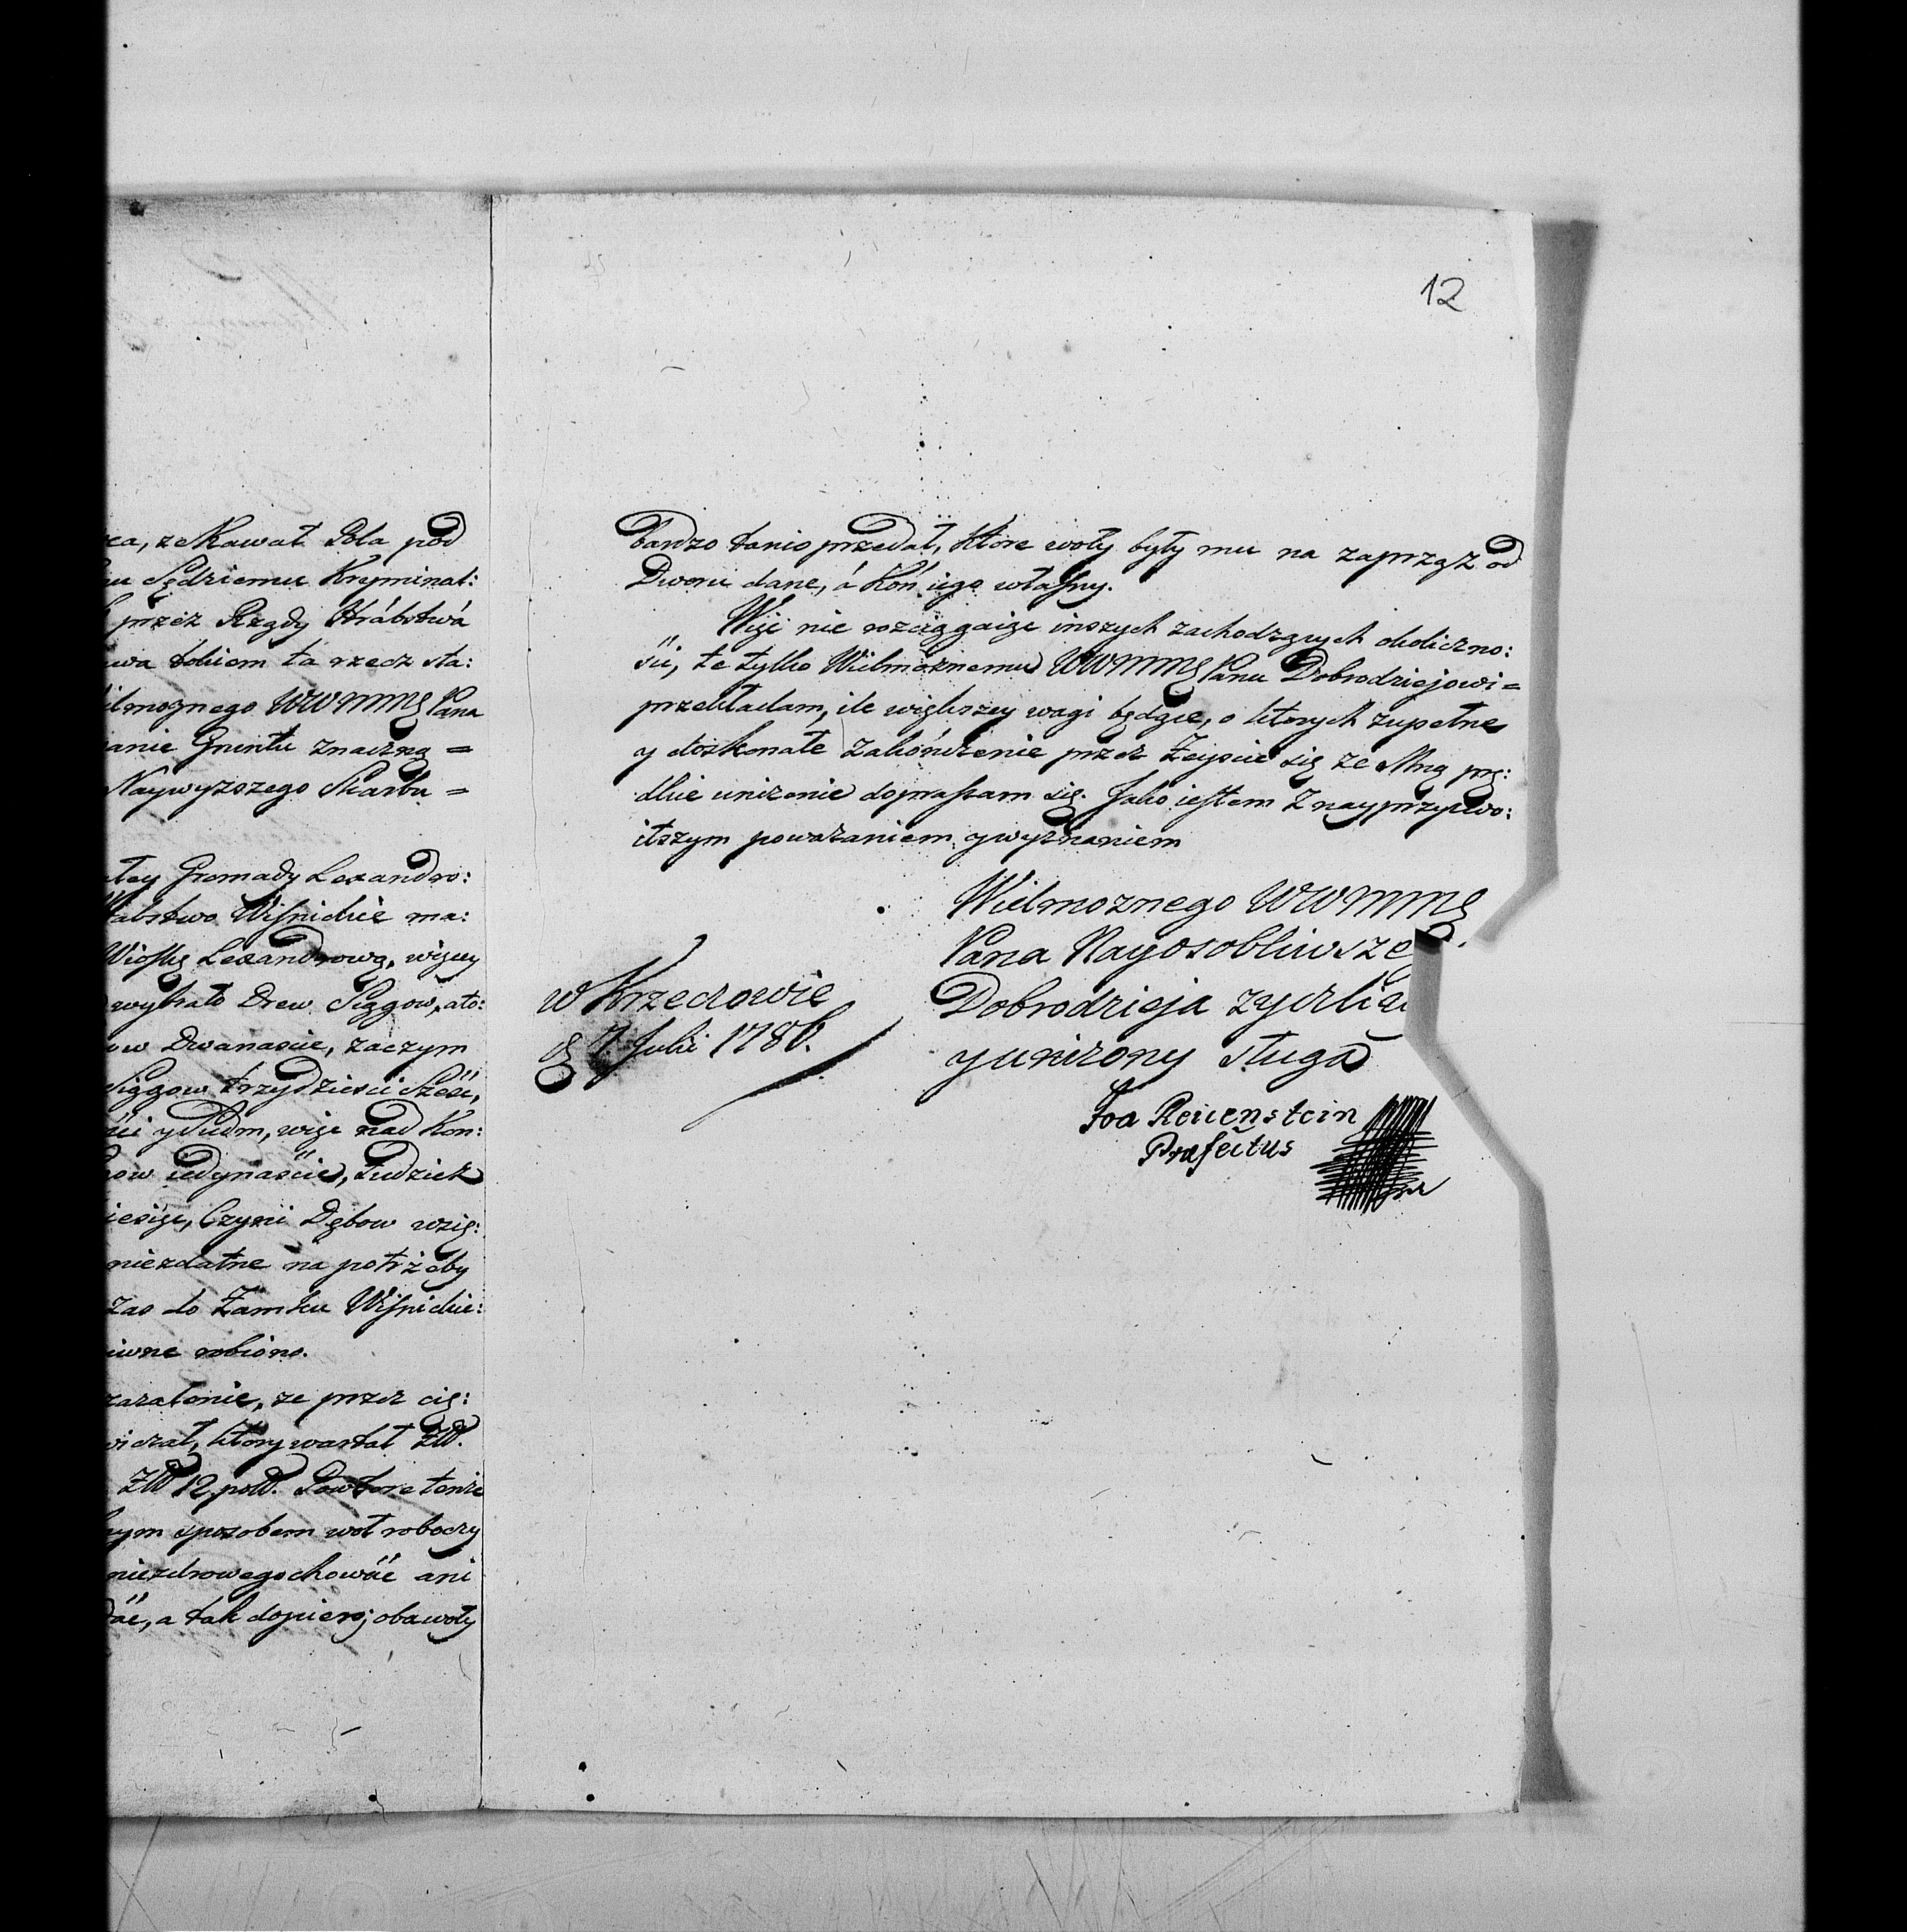 12
ca, ze Kawał Pola pod
u Sędziemu Kryminal:
przez Rządy Hrábstwá
wa tokiem ta rzecz sta:
ilmoznego WWMMG Pana
anie Gruntu znaczną =
Naywyzszego Skarbu =
ałey Gromady Lexandro:
rabstwo Wiśnickie ma:
Wioskę Lexandrową, więcey
wybrało Drew Siągow, ato:
ow Dwanascie, zaczym
Siągow trzydziesci Sześć,
y Siedm, więc nad Kon:
ow iedynaście, Tudziek
iesiąc, Czyni Dębow wzię:
niezdatne na potrzeby
zas do Zamku Wiśnickie:
iwne robiono.
zaralenie, ze przez cię:
iczał, ktory wartał Zł.
Zł 12 pol. Powtore tenże
nym sposobem woł roboczy
niezdrowego chowáć ani
dáć, a tak dopiero, oba woły
bardzo tanio przedał, Ktore woły były mu na zaprząż od
Dworu dane, á Koń iego własny.
Więc nie rozciągaiąc inszych zachodzących okoliczno:
ści, te tylko Wielmożnemu WWMMG Panu Dobrodziejowi =
przekładam, ile większey wagi będące, o ktorych zupełne
y doskonałe zakończenie przez Zeyscie się ze Mną prę:
dkie unizenie dopraszam się. Jako iestem z nayprzyzwo:
itszym powazaniem y wyznaniem
Wielmoznego WWMMG
Pana Nayosobliwsze
Dobrodzieja zyczliw
y unizony sługa
w Krzeczowie
d 7 Julii 1786.
Joa Reivenstein
Prafectus